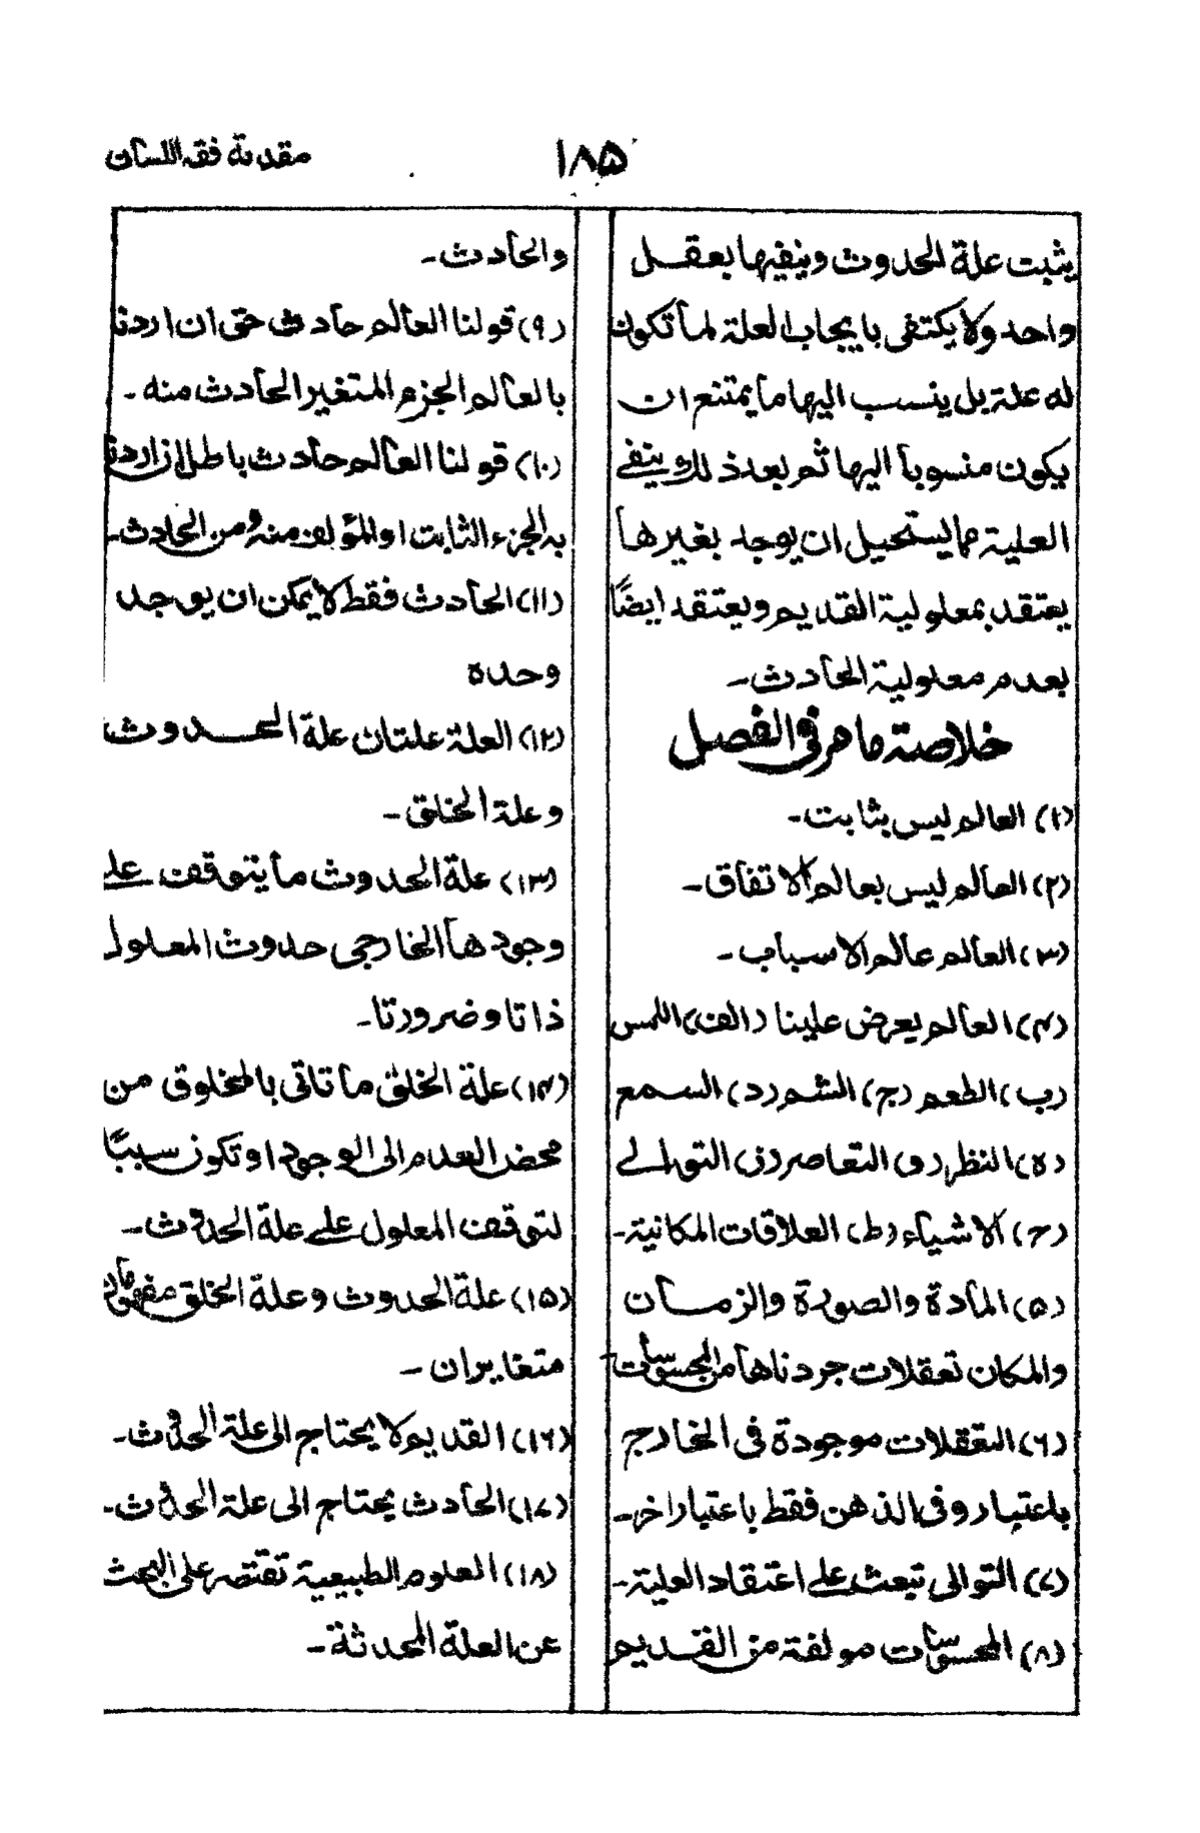 مقدمة فقه اللسان
١٨٥
يثبت علة الحدوث وينفيها بعقل
واحد ولا يكتفى بايجاب العلة لما تكون
له علة بل ينسب اليها ما يمتنع ان
يكون منسوبا اليها ثم بعد ذلك ينفى
العلية مما يستحيل ان يوجد بغيرها
يعتقد بمعلولية القديم ويعتقد ايضًا
بعدم معلولية الحادث۔
خلاصة ما مر فى الفصل
(١) العالم ليس بثابت۔
(٢) العالم ليس بعالم الاتفاق۔
(٣) العالم عالم الاسباب۔
(۴) العالم يعرض علينا (الف) اللمس
(ب) الطعم (ج) الشم (د) السمع
(ه) النظر (و) التقاصر (ز) التوالے
(ح) الاشياء (ط) العلاقات المكانية۔
(۵) المادة والصورة والزمان
والمكان تعقلات جردناها من المحسوسات
(٦) التعقلات موجودة فى الخارج
باعتبار وفى الذهن فقط باعتبار اخر۔
(٧) التوالى تبعث على اعتقاد العلية۔
(٨) المحسوسات مولفة من القديم
والحادث۔
(٩) قولنا العالم حادث حق ان اردنا
بالعالم الجزء المتغير الحادث منه۔
(١٠) قولنا العالم حادث باطل ان اردنا
به الجزء الثابت او المؤلف منه ومن الحادث۔
(١١) الحادث فقط لا يمكن ان يوجد
وحده
(١٢) العلة علتان علة الحدوث
وعلة الخلق۔
(١٣) علة الحدوث ما يتوقف على
وجودها الخارجى حدوث المعلول
ذاتا وضرورتا۔
(١۴) علة الخلق ما تاتى بالمخلوق من
محض العدم الى الوجود او تكون سببًا
لتوقف المعلول على علة الحدوث۔
(١۵) علة الحدوث وعلة الخلق مفهومان
متغايران۔
(١٦) القديم لا يحتاج الى علة الحدوث۔
(١٧) الحادث يحتاج الى علة الحدوث۔
(١٨) العلوم الطبيعية تقتصر على البحث
عن العلة المحدثة۔